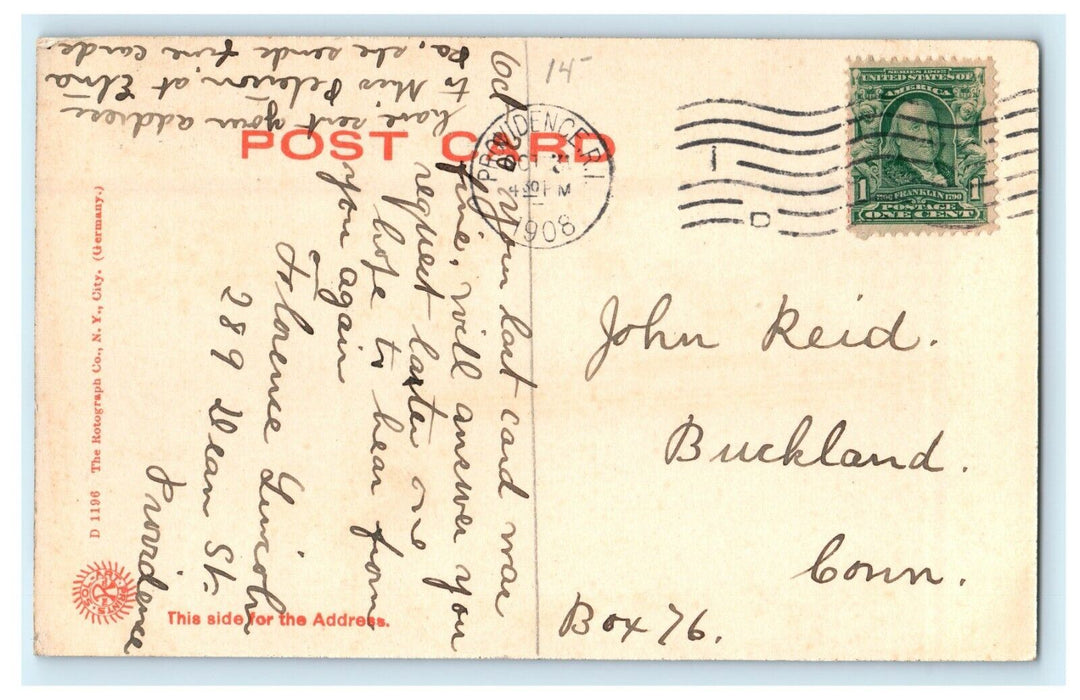 POST CARD
14
PROVIDENCE, R.I.
OCT
4 30 PM
1908
1
D
SERIES 1902
UNITED STATES OF
AMERICA
1706 FRANKLIN 1790
1 1
POSTAGE
ONE CENT
John Reid.
Buckland.
Conn.
Box 76.
Oct your last card was
fine, will answer you
request later on
hope to hear from
you again
Florence Lincoln
289 Dean St.
Providence
have sent your address
to Miss at Etna
Pa, she sends fine cards.
D 1196 The Rotograph Co., N. Y., City. (Germany.)
SOL ART PRINTS
This side for the Address.